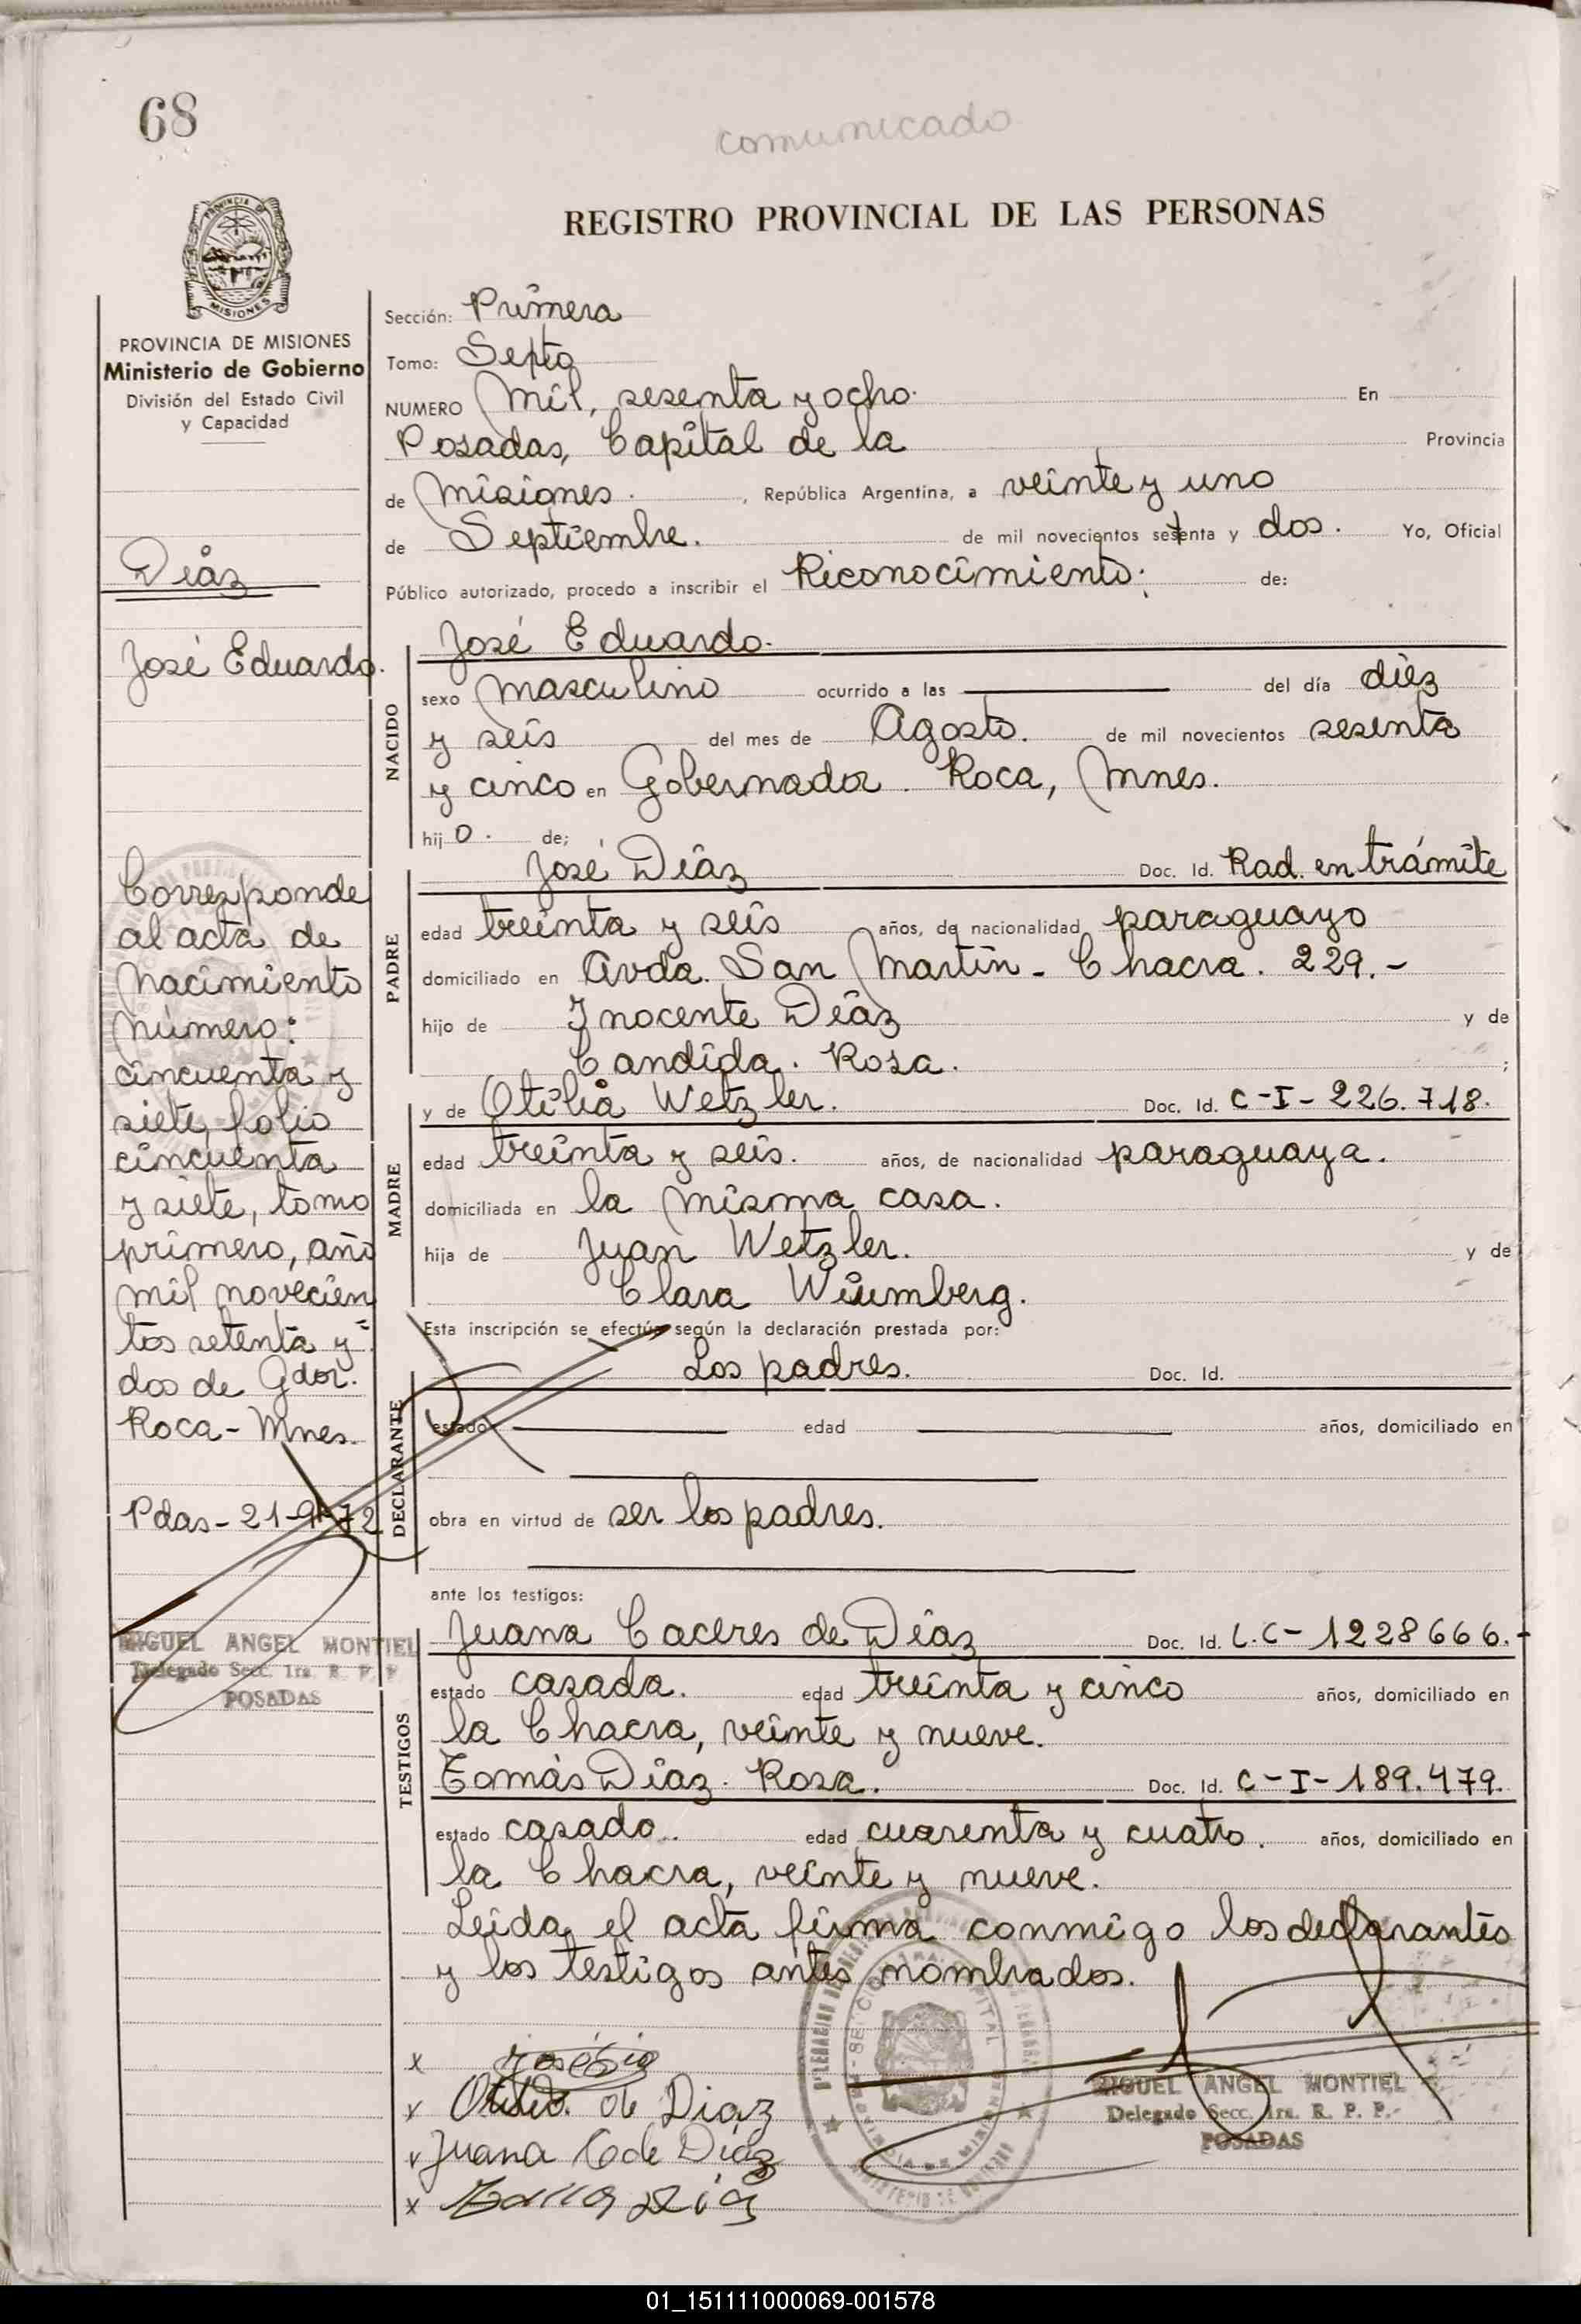 68
comunicado
REGISTRO PROVINCIAL DE LAS PERSONAS
PROVINCIA DE MISIONES
Ministerio de Gobierno
División del Estado Civil
y Capacidad
Díaz
José Eduardo.
Corresponde
al acta de
Nacimiento
Número:
cincuenta y
siete, folio
cincuenta
y siete, tomo
primero, año
mil novecien
tos setenta y
dos de Gdor.
Roca - Mnes.
Pdas - 21-9-72
MIGUEL ANGEL MONTIEL
Delegado Secc. 1ra. R. P. P.
POSADAS
Sección: Primera
Tomo: Septo
NUMERO Mil, sesenta y ocho. En
Posadas, Capital de la Provincia
de Misiones. , República Argentina, a veinte y uno
de Septiembre. de mil novecientos setenta y dos. Yo, Oficial
Público autorizado, procedo a inscribir el Riconocimiento: de:
NACIDO
José Eduardo.
sexo masculino ocurrido a las del día diez
y seis del mes de Agosto. de mil novecientos sesenta
y cinco en Gobernador. Roca, Mnes.
hij o. de;
PADRE
José Díaz Doc. Id. Rad. en trámite
edad treinta y seis años, de nacionalidad paraguayo
domiciliado en Avda. San Martín - Chacra. 229.-
hijo de Inocente Díaz y de
Candida. Rosa. ;
MADRE
y de Otilia Wetzler. Doc. Id. C-I-226.718.
edad treinta y seis. años, de nacionalidad paraguaya.
domiciliada en la misma casa.
hija de Juan Wetzler. y de
Clara Wiumberg.
Esta inscripción se efectúa según la declaración prestada por:
DECLARANTE
Los padres. Doc. Id.
estado edad años, domiciliado en
obra en virtud de ser los padres.
ante los testigos:
TESTIGOS
Juana Caceres de Díaz Doc. Id. L.C-1228666.-
estado casada. edad treinta y cinco años, domiciliado en
la Chacra, veinte y nueve.
Tomás Díaz. Rosa. Doc. Id. C-I-189.479.
estado casado.. edad cuarenta y cuatro. años, domiciliado en
la Chacra, veinte y nueve.
Leida el acta firma conmigo los declarantes
y los testigos antes nombrados.
x
x de Diaz
x Juana C de Díaz
x
MIGUEL ANGEL MONTIEL
Delegado Secc. 1ra. R. P. P.-
POSADAS
01_151111000069-001578